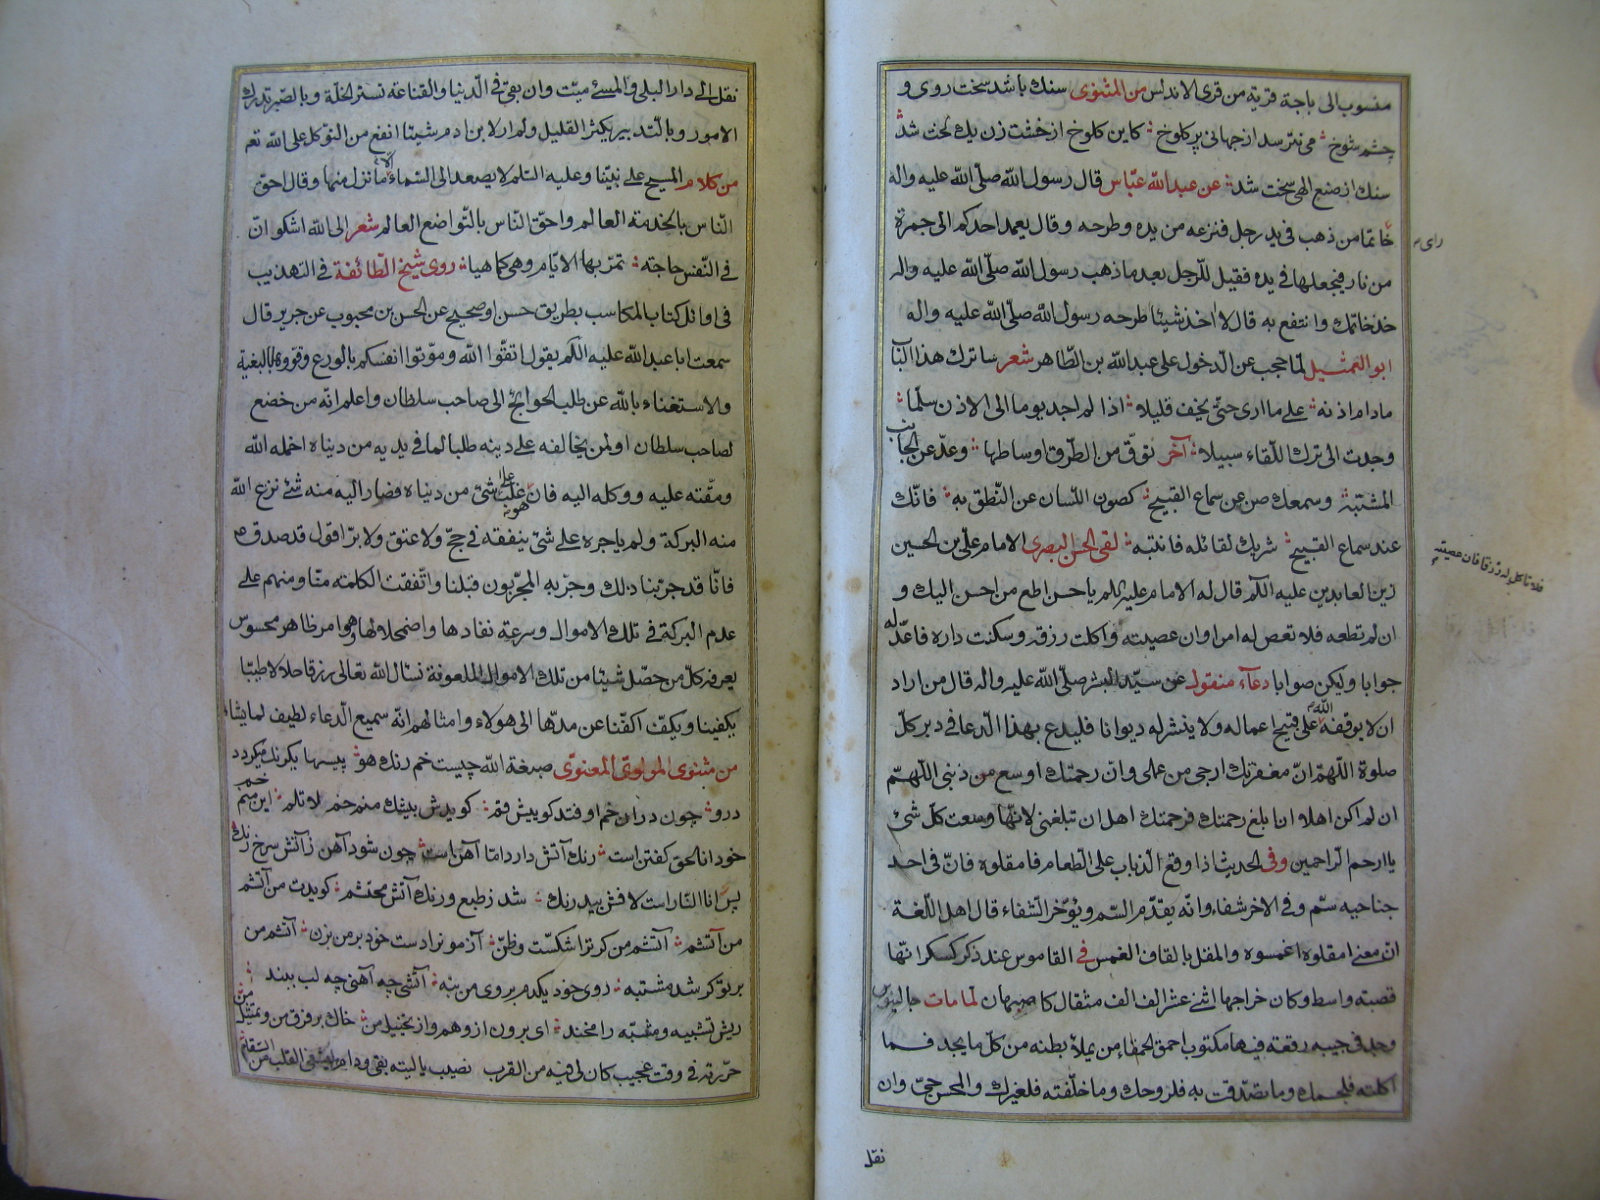 منسوب الی باجة قریة من قری الاندلس من المثنوی سنك باشد سخت روی و
چشم شوخ می نترسد از جهانی پر کلوخ کاین کلوخ از خشت زن یك لخت شد
سنك از صنع الهی سخت شد عن عبد الله عباس قال رسول الله صلی الله علیه واله
رای
خاتما من ذهب فی ید رجل فنزعه من یده وطرحه وقال یعمد احدکم الی جمرة
من نار فیجعلها فی یده فقیل للرجل بعد ما ذهب رسول الله صلی الله علیه واله
خذ خاتمك وانتفع به قال لا اخذ شیئا طرحه رسول الله صلی الله علیه واله
ابو العمثیل لما حجب عن الدخول علی عبد الله بن الطاهر شعر ساترك هذا الباب
مادام اذنه علی ما اری حتی یخف قلیلا اذا لم اجد یوما الی الاذن سلما
وجدت الی ترك اللقاء سبیلا آخر توق من الطرق اوساطها وعد عن الجانب
المشتبه وسمعك صن عن سماع القبیح کصون اللسان عن النطق به فانك
عند سماع القبیح شریك لقائله فانتبه لقی الحسن البصری الامام علی بن الحسین
زین العابدین علیه السلم قال له الامام علیه السلم یا حسن اطع من احسن الیك و
ان لم تطعه فلا تعص له امرا وان عصیته واکلت رزقه وسکنت داره فاعد له
فلا تاکل له رزقا فان عصیته
جوابا ولیکن صوابا دعاء منقول عن سید البشر صلی الله علیه واله قال من اراد
ان لا یوقفه الله علی قبیح اعماله ولا ینشر له دیوانا فلیدع بهذا الدعا فی دبر کل
صلوة اللهم ان مغفرتك ارجی من عملی وان رحمتك اوسع من ذنبی اللهم
ان لم اکن اهلا ان ابلغ رحمتك فرحمتك اهل ان تبلغنی لانها وسعت کل شئ
یا ارحم الراحمین وفی الحدیث اذا وقع الذباب علی الطعام فامقلوه فان فی احد
جناحیه سم وفی الاخر شفاء وانه یقدم السم ویؤخر الشفاء قال اهل اللغة
ان معنی امقلوه اغمسوه والمقل بالقاف الغمس فی القاموس عند ذکر کسکر انها
قصبته واسط وکان خراجها اثنی عشر الف الف مثقال کاصبهان لما مات جالینوس
وجد فی جیبه رقعة فیها مکتوب احمق الحمقاء من یملأ بطنه من کل ما یجد فما
اکلته فلجسمك وما تصدقت به فلروحك وما خلفته فلغیرك والمحسن حی وان
نقل
نقل الی دار البلی والمسئ میت وان بقی فی الدنیا والقناعة تستر الخلة وبالصبر تدرك
الامور وبالتدبیر یکثر القلیل ولم ار لابن ادم شیئا انفع من التوکل علی الله تعم
من کلام المسیح علی نبینا وعلیه السلم لا یصعد الی السماء الا ما نزل منها وقال احق
الناس بالخدمة العالم واحق الناس بالتواضع العالم شعر الی الله اشکو ان
فی النفس حاجة تمر بها الایام وهی کما هیا روی شیخ الطائفة فی التهذیب
فی اوائل کتاب المکاسب بطریق حسن او صحیح عن الحسن بن محبوب عن جریر قال
سمعت ابا عبد الله علیه السلم یقول اتقوا الله وموتوا انفسکم بالورع وقووه بالبغیة
والاستغناء بالله عن طلب الحوایج الی صاحب سلطان واعلم انه من خضع
لصاحب سلطان او لمن یخالفه علی دینه طلبا لما فی یدیه من دنیاه اخمله الله
ومقته علیه ووکله الیه فان هو غلب علی شئ من دنیاه فصار الیه منه شئ نزع الله
منه البرکة ولم یاجره علی شئ ینفقه فی حج ولا عتق ولا بر اقول قد صدق ع
فانا قد جربنا ذلك وجربه المجربون قبلنا واتفقت الکلمة منا ومنهم علی
عدم البرکة فی تلك الاموال وسرعة نفادها واضمحلالها وهو امر ظاهر محسوس
یعرفه کل من حصل شیئا من تلك الاموال الملعونة نسال الله تعالی رزقا حلالا طیبا
یکفینا ویکف اکفنا عن مدها الی هولاء وامثالهم انه سمیع الدعاء لطیف لما یشاء
من مثنوی المولوی المعنوی صبغة الله چیست خم رنك هو پیسها یکرنك میکردد
درو چون در ان خم اوفتد کوییش قم کویدش بیشك منم خم لا تلم این منم خم
خود انا الحق کفتن است رنك آتش دارد اما آهن است چون شود آهن ز آتش سرخ رنك
پس انا النار است لافش بیدرنك شد ز طبع ورنك آتش محتشم کویدت من آتشم
من آتشم آتشم من کر ترا شکست وظن آزمون را دست خود بر من بزن آتشم من
بر تو کر شد مشتبه روی خود یکدم بروی من بنه آتشی چه آهنی چه لب ببند
ریش تشبیه ومشبه را مخند ای برون از وهم واز تخییل من خاك بر فرق من وتمثیل من
حررته فی وقت عجیب کان لی فیه من القرب نصیب یا لیته بقی ودام القلب من السقام